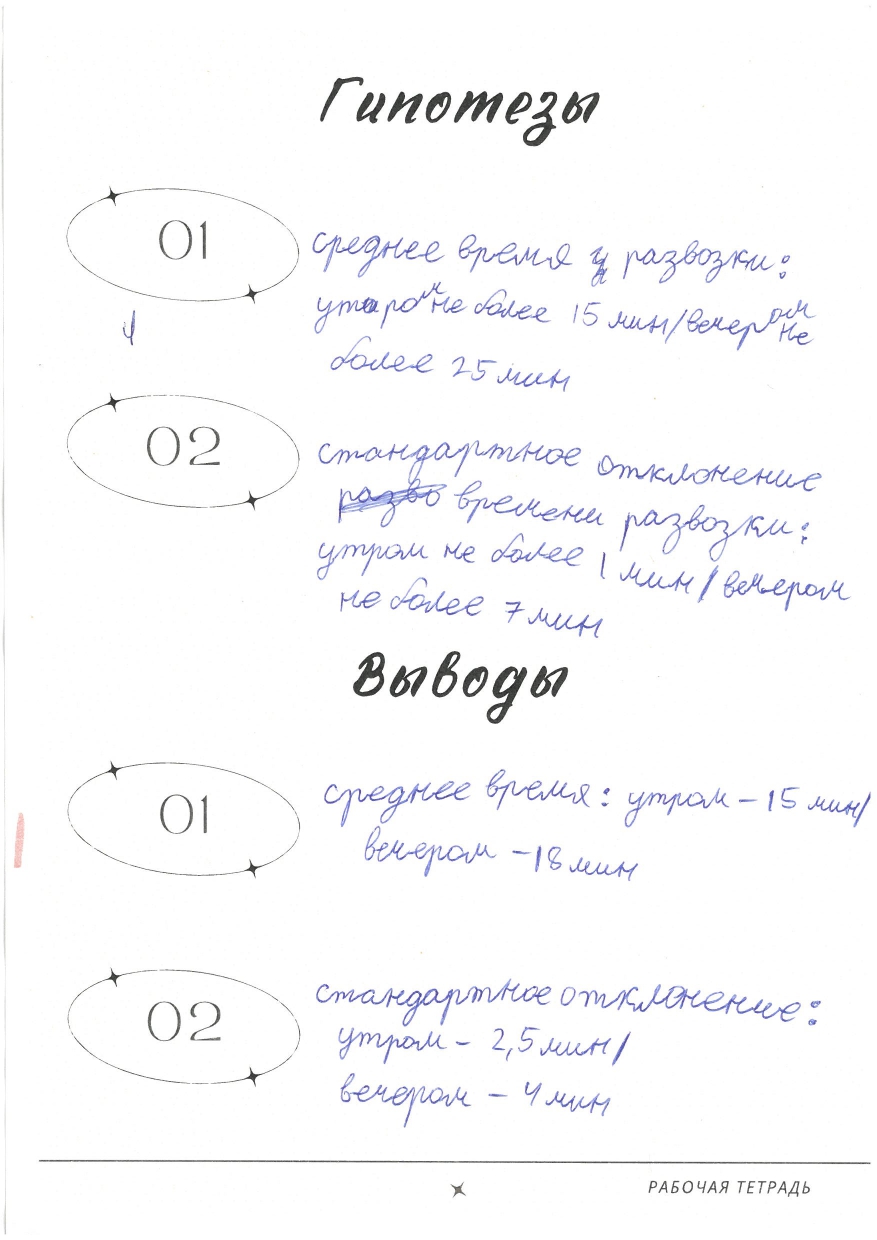 Гипотезы
01
среднее время развозки:
утром не более 15 мин/вечером не
более 25 мин
02
стандартное отклонение
разво времени развозки:
утром не более 1 мин/вечером
не более 7 мин
Выводы
01
среднее время: утром – 15 мин/
вечером – 18 мин
02
стандартное отклонение:
утром – 2,5 мин/
вечером – 4 мин
РАБОЧАЯ ТЕТРАДЬ